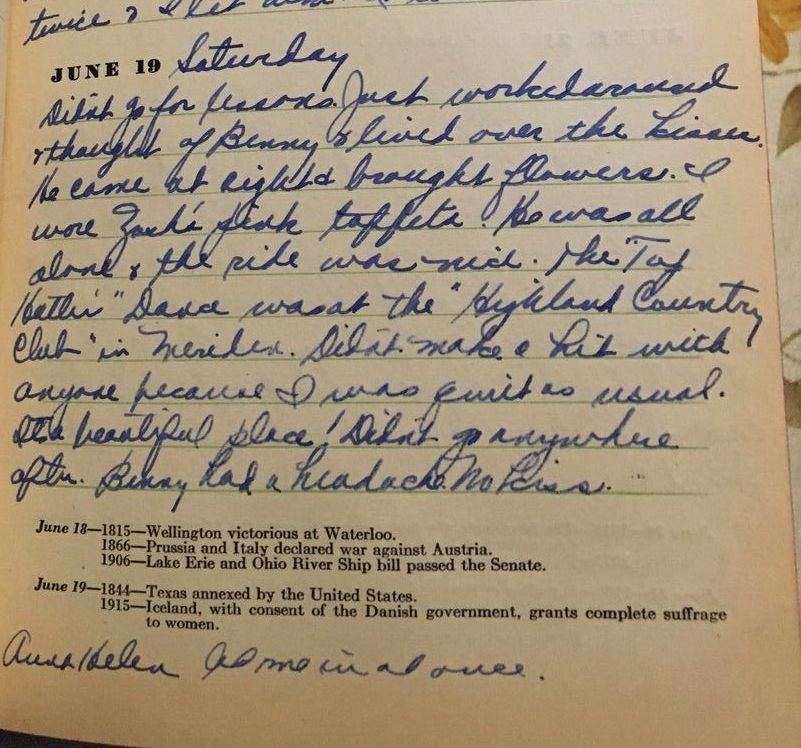 twice & I let
JUNE 19 Saturday
Didn't go for lessons. Just worked around
& thought of Benny & lived over the kisses.
He came at eight & brought flowers. I
wore pink taffeta. He was all
alone & the ride was nice. The "Top
Hatters" Dance was at the "Highland Country
Club" in Meriden. Didn't make a hit with
anyone because I was quiet as usual.
It's a beautiful place! Didn't go anywhere
after. Benny had a headache. No kiss.
June 18—1815—Wellington victorious at Waterloo.
1866—Prussia and Italy declared war against Austria.
1906—Lake Erie and Ohio River Ship bill passed the Senate.
June 19—1844—Texas annexed by the United States.
1915—Iceland, with consent of the Danish government, grants complete suffrage
to women.
Helen me in at once.